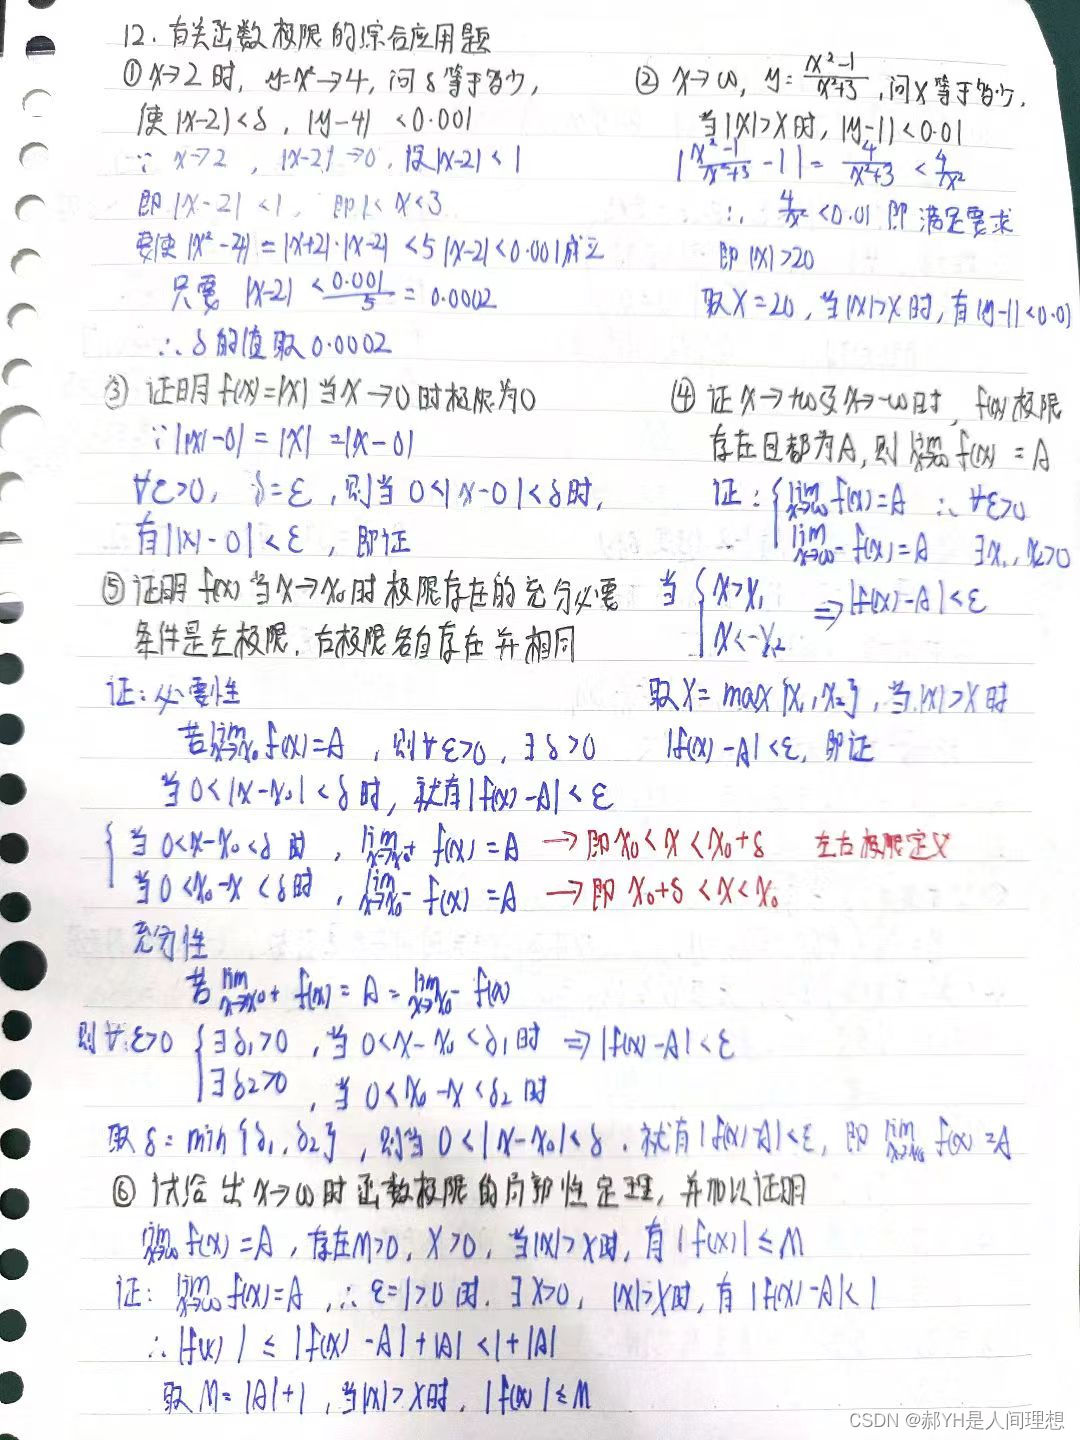 12. 有关函数极限的综合应用题
① x→2 时, y=x²→4, 问 δ 等于多少,
使 |x-2|<δ, |y-4| <0.001
∵ x→2, |x-2|→0, 设|x-2|<1
即 |x-2|<1, 即1<x<3
要使 |x²-4| = |x+2|·|x-2| <5|x-2|<0.001成立
只需 |x-2| < 0.001/5 = 0.0002
∴ δ 的值取 0.0002
② x→∞, y= (x²-1)/(x²+3), 问X等于多少,
当|x|>X时, |y-1|<0.01
|(x²-1)/(x²+3) -1| = 4/(x²+3) < 4/x²
∴ 4/x² <0.01 即满足要求
即 |x|>20
取X=20, 当|x|>X时, 有|y-1|<0.01
③ 证明 f(x)=|x| 当x→0时极限为0
∵ ||x|-0| = |x| = |x-0|
∀ε>0, δ=ε, 则当 0<|x-0|<δ时,
有||x|-0|<ε, 即证
④ 证 x→+∞及x→-∞时, f(x)极限
存在且都为A, 则 lim x→∞ f(x) = A
证: { lim x→∞ f(x)=A ∴ ∀ε>0
lim x→∞- f(x)=A ∃x₁, x₂>0
当 { x>x₁ ⇒ |f(x)-A|<ε
x<-x₂
取X= max{x₁, x₂}, 当|x|>X时
|f(x)-A|<ε, 即证
⑤ 证明 f(x) 当x→x₀时极限存在的充分必要
条件是左极限, 右极限各自存在并相同
证: 必要性
若 lim x→x₀ f(x)=A, 则∀ε>0, ∃δ>0
当 0<|x-x₀|<δ时, 就有|f(x)-A|<ε
{ 当 0<x-x₀<δ 时, lim x→x₀+ f(x) = A → 即x₀<x<x₀+δ 左右极限定义
当 0<x₀-x<δ时, lim x→x₀- f(x) = A → 即 x₀+δ<x<x₀
充分性
若 lim x→x₀+ f(x) = A = lim x→x₀- f(x)
则∀ε>0 { ∃δ₁>0, 当 0<x-x₀<δ₁时 ⇒ |f(x)-A|<ε
∃δ₂>0, 当 0<x₀-x<δ₂时
取 δ= min{δ₁, δ₂}, 则当 0<|x-x₀|<δ, 就有|f(x)-A|<ε, 即 lim x→x₀ f(x)=A
⑥ 试给出x→∞时函数极限的局部性定理, 并加以证明
lim x→∞ f(x)=A, 存在M>0, X>0, 当|x|>X时, 有|f(x)|≤M
证: lim x→∞ f(x)=A, ∴ ε=1>0 时, ∃X>0, |x|>X时, 有|f(x)-A|<1
∴ |f(x)| ≤ |f(x)-A|+|A|<1+|A|
取 M=|A|+1, 当|x|>X时, |f(x)|≤M
CSDN @郝YH是人间理想